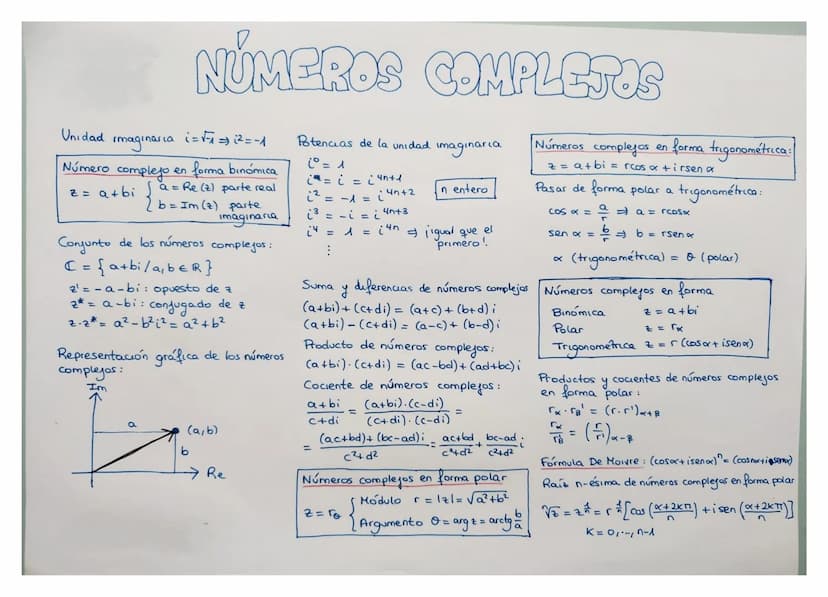 NÚMEROS COMPLEJOS
Unidad imaginaria i=√-1 ⇒ i²=-1
Número complejo en forma binómica
z = a+bi { a = Re(z) parte real
b = Im(z) parte
imaginaria
Conjunto de los números complejos:
ℂ = {a+bi/a,b∈ℝ}
z' = -a-bi : opuesto de z
z* = a-bi : conjugado de z
z·z* = a²-b²i² = a²+b²
Representación gráfica de los números
complejos:
Im
a
(a,b)
b
Re
Potencias de la unidad imaginaria
i⁰ = 1
i¹ = i = i⁴ⁿ⁺¹
i² = -1 = i⁴ⁿ⁺²
n entero
i³ = -i = i⁴ⁿ⁺³
i⁴ = 1 = i⁴ⁿ ⇒ ¡igual que el
primero!
⋮
Suma y diferencias de números complejos
(a+bi)+(c+di) = (a+c)+(b+d)i
(a+bi)-(c+di) = (a-c)+(b-d)i
Producto de números complejos:
(a+bi)·(c+di) = (ac-bd)+(ad+bc)i
Cociente de números complejos:
(a+bi)/(c+di) = ((a+bi)·(c-di))/((c+di)·(c-di)) =
= ((ac+bd)+(bc-ad)i)/(c²+d²) = (ac+bd)/(c²+d²) + (bc-ad)/(c²+d²) i
Números complejos en forma polar
z = r_θ { Módulo r = |z| = √(a²+b²)
Argumento θ = arg z = arctg b/a
Números complejos en forma trigonométrica:
z = a+bi = rcos α + i rsen α
Pasar de forma polar a trigonométrica:
cos α = a/r ⇒ a = rcosα
sen α = b/r ⇒ b = rsenα
α (trigonométrica) = θ (polar)
Números complejos en forma
Binómica z = a+bi
Polar z = r_α
Trigonométrica z = r(cosα + isenα)
Productos y cocientes de números complejos
en forma polar:
r_α · r_β' = (r·r')_α+β
r_α/r'_β = (r/r')_α-β
Fórmula De Moivre: (cosα+isenα)ⁿ = (cosnα+isennα)
Raíz n-ésima de números complejos en forma polar
ⁿ√z = z^(1/n) = r^(1/n) [cos((α+2kπ)/n) + i sen((α+2kπ)/n)]
K = 0, ..., n-1